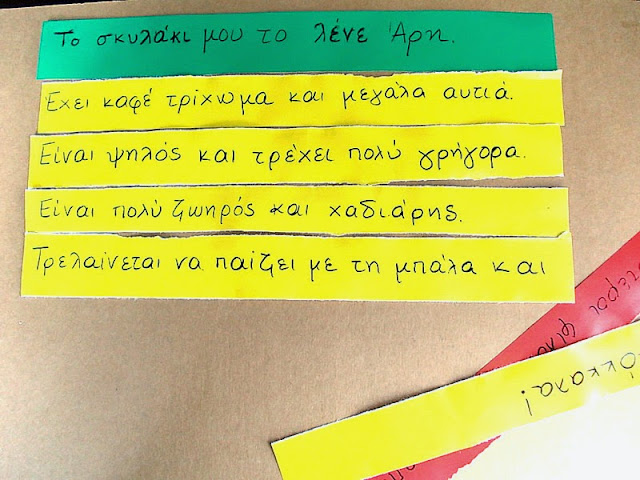 Το σκυλάκι μου το λένε Άρη.
Έχει καφέ τρίχωμα και μεγάλα αυτιά.
Είναι ψηλός και τρέχει πολύ γρήγορα.
Είναι πολύ ζωηρός και χαδιάρης.
Τρελαίνεται να παίζει με τη μπάλα και